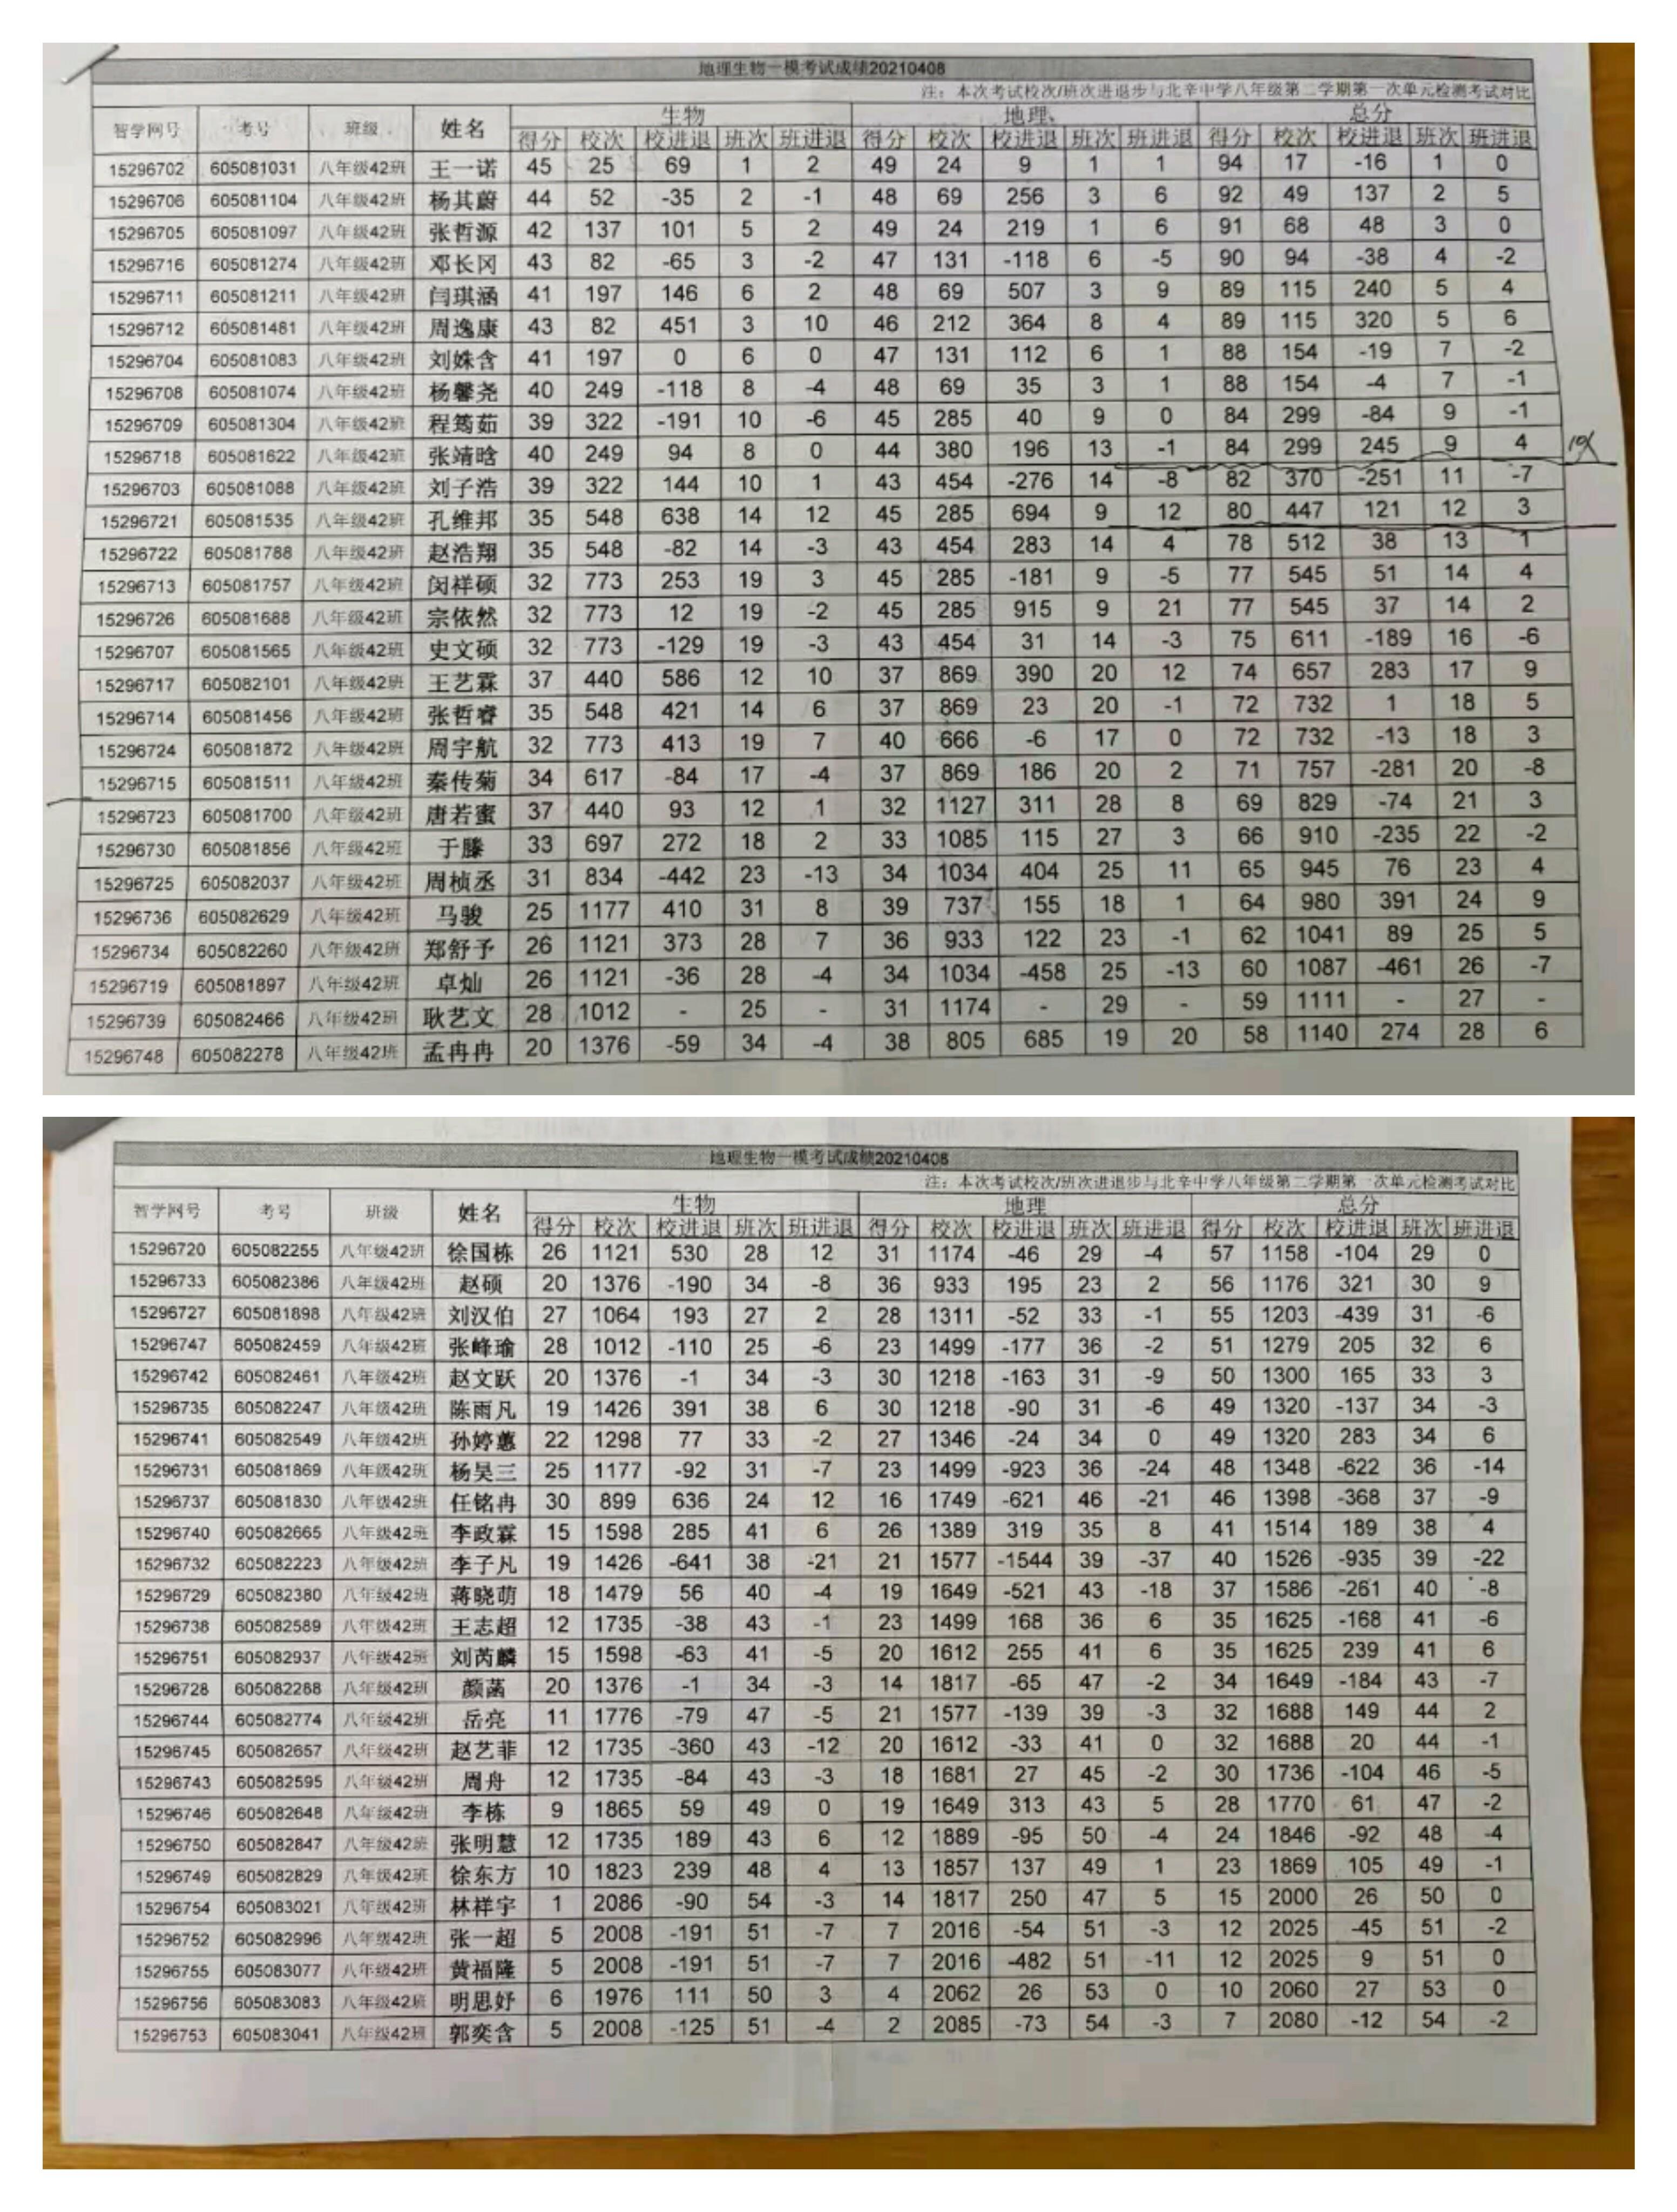 地理生物一模考试成绩20210408
注：本次考试校次/班次进退步与北辛中学八年级第二学期第一次单元检测考试对比
智学网号 考号 班级 姓名 生物 地理 总分
得分 校次 校进退 班次 班进退 得分 校次 校进退 班次 班进退 得分 校次 校进退 班次 班进退
15296702 605081031 八年级42班 王一诺 45 25 69 1 2 49 24 9 1 1 94 17 -16 1 0
15296706 605081104 八年级42班 杨其蔚 44 52 -35 2 -1 48 69 256 3 6 92 49 137 2 5
15296705 605081097 八年级42班 张哲源 42 137 101 5 2 49 24 219 1 6 91 68 48 3 0
15296716 605081274 八年级42班 邓长冈 43 82 -65 3 -2 47 131 -118 6 -5 90 94 -38 4 -2
15296711 605081211 八年级42班 闫琪涵 41 197 146 6 2 48 69 507 3 9 89 115 240 5 4
15296712 605081481 八年级42班 周逸康 43 82 451 3 10 46 212 364 8 4 89 115 320 5 6
15296704 605081083 八年级42班 刘姝含 41 197 0 6 0 47 131 112 6 1 88 154 -19 7 -2
15296708 605081074 八年级42班 杨馨尧 40 249 -118 8 -4 48 69 35 3 1 88 154 -4 7 -1
15296709 605081304 八年级42班 程筠茹 39 322 -191 10 -6 45 285 40 9 0 84 299 -84 9 -1
15296718 605081622 八年级42班 张靖晗 40 249 94 8 0 44 380 196 13 -1 84 299 245 9 4
15296703 605081088 八年级42班 刘子浩 39 322 144 10 1 43 454 -276 14 -8 82 370 -251 11 -7
15296721 605081535 八年级42班 孔维邦 35 548 638 14 12 45 285 694 9 12 80 447 121 12 3
15296722 605081788 八年级42班 赵浩翔 35 548 -82 14 -3 43 454 283 14 4 78 512 38 13 1
15296713 605081757 八年级42班 闵祥硕 32 773 253 19 3 45 285 -181 9 -5 77 545 51 14 4
15296726 605081688 八年级42班 宗依然 32 773 12 19 -2 45 285 915 9 21 77 545 37 14 2
15296707 605081565 八年级42班 史文硕 32 773 -129 19 -3 43 454 31 14 -3 75 611 -189 16 -6
15296717 605082101 八年级42班 王艺霖 37 440 586 12 10 37 869 390 20 12 74 657 283 17 9
15296714 605081456 八年级42班 张哲睿 35 548 421 14 6 37 869 23 20 -1 72 732 1 18 5
15296724 605081872 八年级42班 周宇航 32 773 413 19 7 40 666 -6 17 0 72 732 -13 18 3
15296715 605081511 八年级42班 秦传菊 34 617 -84 17 -4 37 869 186 20 2 71 757 -281 20 -8
15296723 605081700 八年级42班 唐若蜜 37 440 93 12 1 32 1127 311 28 8 69 829 -74 21 3
15296730 605081856 八年级42班 于滕 33 697 272 18 2 33 1085 115 27 3 66 910 -235 22 -2
15296725 605082037 八年级42班 周桢丞 31 834 -442 23 -13 34 1034 404 25 11 65 945 76 23 4
15296736 605082629 八年级42班 马骏 25 1177 410 31 8 39 737 155 18 1 64 980 391 24 9
15296734 605082260 八年级42班 郑舒予 26 1121 373 28 7 36 933 122 23 -1 62 1041 89 25 5
15296719 605081897 八年级42班 卓灿 26 1121 -36 28 -4 34 1034 -458 25 -13 60 1087 -461 26 -7
15296739 605082466 八年级42班 耿艺文 28 1012 - 25 - 31 1174 - 29 - 59 1111 - 27 -
15296748 605082278 八年级42班 孟冉冉 20 1376 -59 34 -4 38 805 685 19 20 58 1140 274 28 6
地理生物一模考试成绩20210408
注：本次考试校次/班次进退步与北辛中学八年级第二学期第一次单元检测考试对比
智学网号 考号 班级 姓名 生物 地理 总分
得分 校次 校进退 班次 班进退 得分 校次 校进退 班次 班进退 得分 校次 校进退 班次 班进退
15296720 605082255 八年级42班 徐国栋 26 1121 530 28 12 31 1174 -46 29 -4 57 1158 -104 29 0
15296733 605082386 八年级42班 赵硕 20 1376 -190 34 -8 36 933 195 23 2 56 1176 321 30 9
15296727 605081898 八年级42班 刘汉伯 27 1064 193 27 2 28 1311 -52 33 -1 55 1203 -439 31 -6
15296747 605082459 八年级42班 张峰瑜 28 1012 -110 25 -6 23 1499 -177 36 -2 51 1279 205 32 6
15296742 605082461 八年级42班 赵文跃 20 1376 -1 34 -3 30 1218 -163 31 -9 50 1300 165 33 3
15296735 605082247 八年级42班 陈雨凡 19 1426 391 38 6 30 1218 -90 31 -6 49 1320 -137 34 -3
15296741 605082549 八年级42班 孙婷蕙 22 1298 77 33 -2 27 1346 -24 34 0 49 1320 283 34 6
15296731 605081869 八年级42班 杨昊三 25 1177 -92 31 -7 23 1499 -923 36 -24 48 1348 -622 36 -14
15296737 605081830 八年级42班 任铭冉 30 899 636 24 12 16 1749 -621 46 -21 46 1398 -368 37 -9
15296740 605082665 八年级42班 李政霖 15 1598 285 41 6 26 1389 319 35 8 41 1514 189 38 4
15296732 605082223 八年级42班 李子凡 19 1426 -641 38 -21 21 1577 -1544 39 -37 40 1526 -935 39 -22
15296729 605082380 八年级42班 蒋晓萌 18 1479 56 40 -4 19 1649 -521 43 -18 37 1586 -261 40 -8
15296738 605082589 八年级42班 王志超 12 1735 -38 43 -1 23 1499 168 36 6 35 1625 -168 41 -6
15296751 605082937 八年级42班 刘芮麟 15 1598 -63 41 -5 20 1612 255 41 6 35 1625 239 41 6
15296728 605082288 八年级42班 颜菡 20 1376 -1 34 -3 14 1817 -65 47 -2 34 1649 -184 43 -7
15296744 605082774 八年级42班 岳亮 11 1776 -79 47 -5 21 1577 -139 39 -3 32 1688 149 44 2
15296745 605082657 八年级42班 赵艺菲 12 1735 -360 43 -12 20 1612 -33 41 0 32 1688 20 44 -1
15296743 605082595 八年级42班 周舟 12 1735 -84 43 -3 18 1681 27 45 -2 30 1736 -104 46 -5
15296746 605082648 八年级42班 李栋 9 1865 59 49 0 19 1649 313 43 5 28 1770 61 47 -2
15296750 605082847 八年级42班 张明慧 12 1735 189 43 6 12 1889 -95 50 -4 24 1846 -92 48 -4
15296749 605082829 八年级42班 徐东方 10 1823 239 48 4 13 1857 137 49 1 23 1869 105 49 -1
15296754 605083021 八年级42班 林祥宇 1 2086 -90 54 -3 14 1817 250 47 5 15 2000 26 50 0
15296752 605082996 八年级42班 张一超 5 2008 -191 51 -7 7 2016 -54 51 -3 12 2025 -45 51 -2
15296755 605083077 八年级42班 黄福隆 5 2008 -191 51 -7 7 2016 -482 51 -11 12 2025 9 51 0
15296756 605083083 八年级42班 明思妤 6 1976 111 50 3 4 2062 26 53 0 10 2060 27 53 0
15296753 605083041 八年级42班 郭奕含 5 2008 -125 51 -4 2 2085 -73 54 -3 7 2080 -12 54 -2